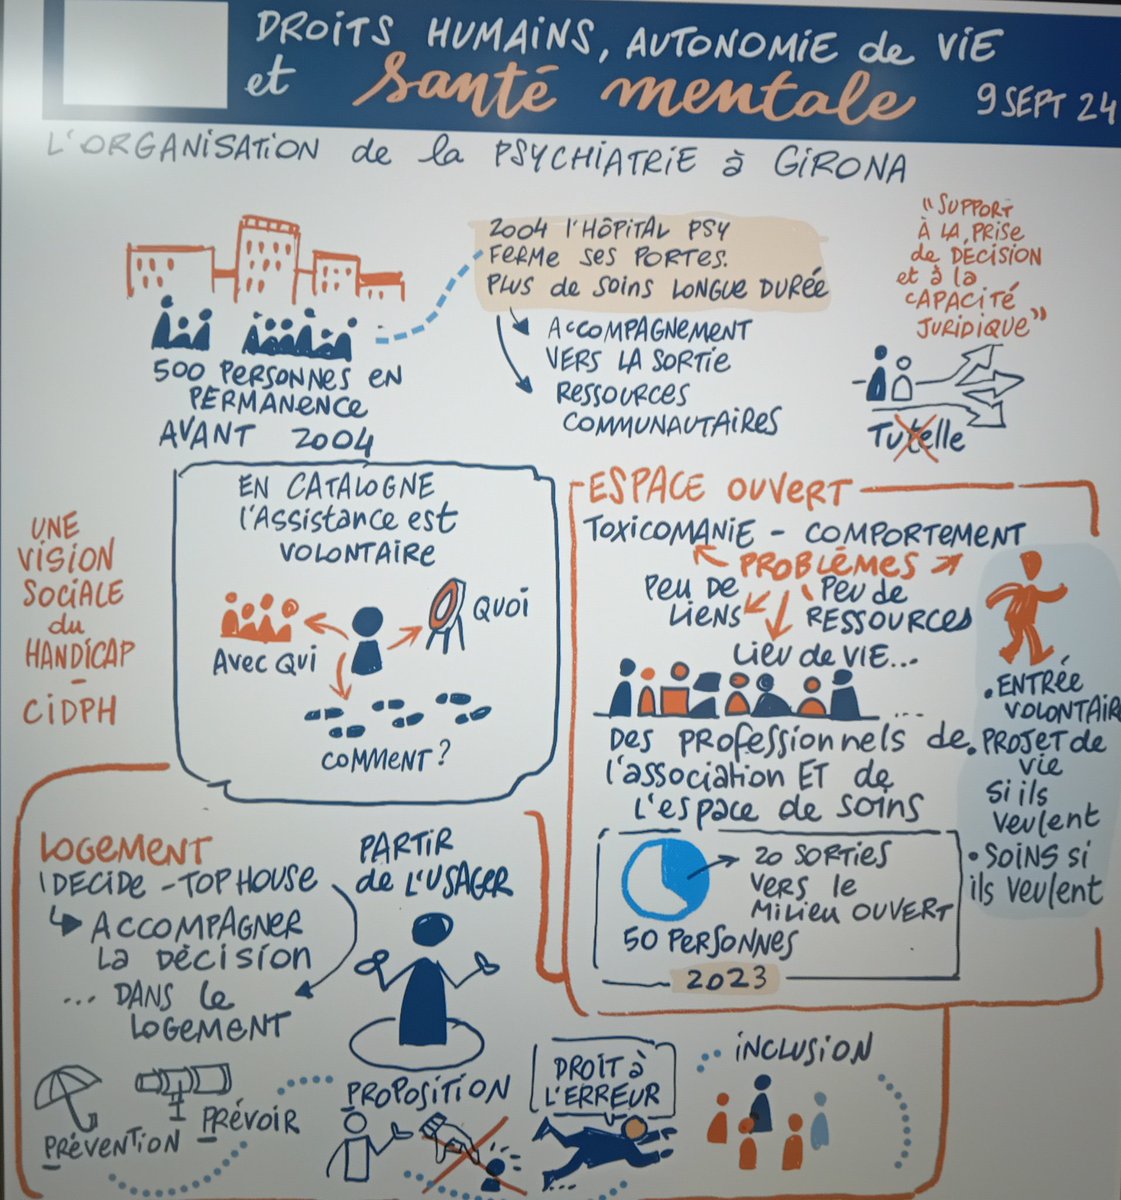 DROITS HUMAINS, AUTONOMIE de VIE
et santé mentale 9 SEPT 24
L'ORGANISATION de la PSYCHIATRIE à GIRONA
500 PERSONNES EN
PERMANENCE
AVANT 2004
2004 l'HÔPITAL PSY
FERME SES PORTES.
PLUS de SOINS LONGUE DURÉE
ACCOMPAGNEMENT
VERS LA SORTIE
RESSOURCES
COMMUNAUTAIRES
"SUPPORT
À LA PRISE
de DÉCISION
et à la
CAPACITÉ
JURIDIQUE"
Tutelle
UNE
VISION
SOCIALE
du
HANDICAP
-
CIDPH
EN CATALOGNE
l'Assistance est
VOLONTAIRE
AVEC QUI
QUOI
COMMENT?
ESPACE OUVERT
TOXICOMANIE - COMPORTEMENT
PROBLÈMES
PEU DE
LIENS
PEU de
RESSOURCES
LIEU de VIE...
...
DES PROFESSIONNELS de
l'association ET de
L'ESPACE de SOINS
• ENTRÉE
VOLONTAIR
• PROJET de
vie
SI ils
veulent
• SOINS SI
ils veulent
20 SORTIES
VERS le
MILIEU OUVERT
50 PERSONNES
2023
LOGEMENT
IDECIDE - TOP HOUSE
ACCOMPAGNER
LA DÉCISION
... DANS le
LOGEMENT
PARTIR
de L'USAGER
PRÉVENTION
PRÉVOIR
PROPOSITION
DROIT à
L'ERREUR
INCLUSION